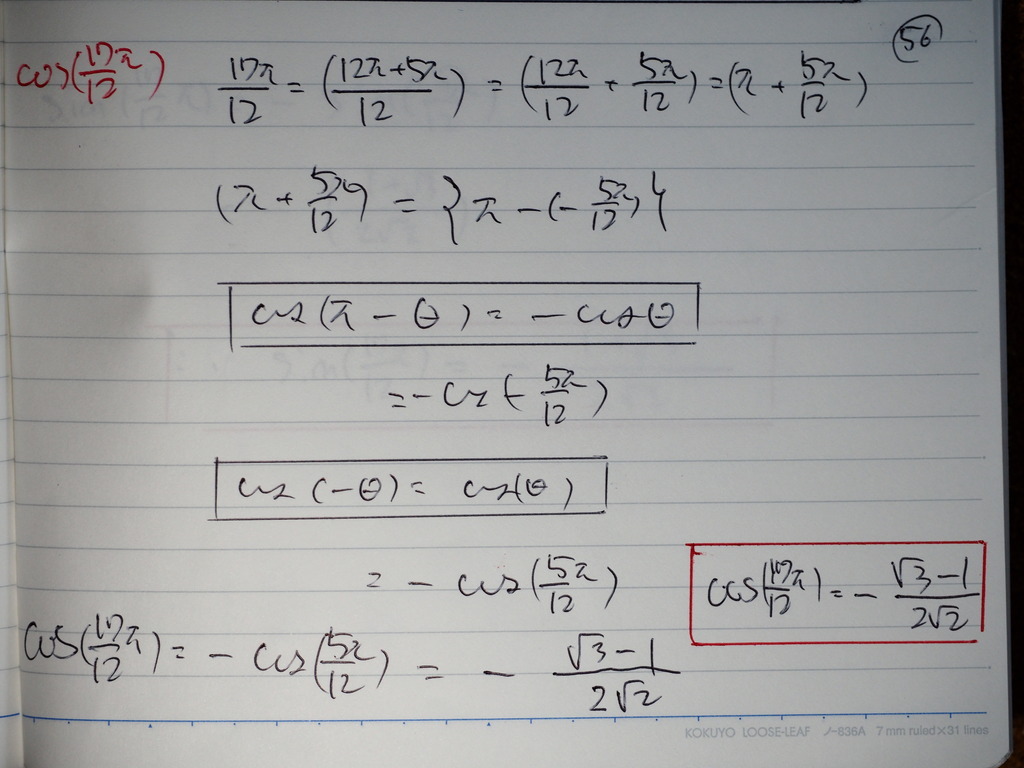 56
cos(17π/12) 17π/12 = (12π+5π/12) = (12π/12 + 5π/12) = (π + 5π/12)
(π + 5π/12) = {π - (-5π/12)}
cos(π - θ) = - cosθ
= - cos(-5π/12)
cos(-θ) = cos(θ)
= - cos(5π/12)
cos(17π/12) = - √3-1/2√2
cos(17π/12) = - cos(5π/12) = - √3-1/2√2
KOKUYO LOOSE-LEAF ノ-836A 7 mm ruled×31 lines